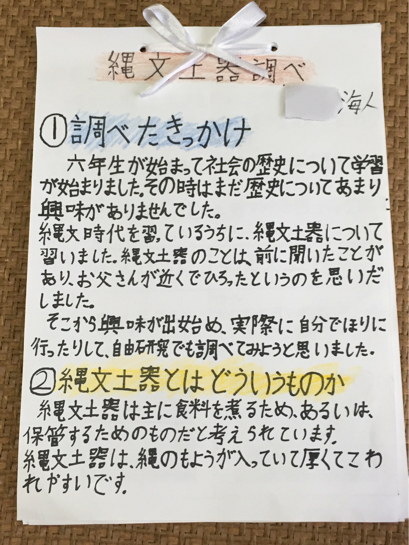 縄文土器調べ
海人
①調べたきっかけ
六年生が始まって社会の歴史について学習
が始まりました。その時はまだ歴史についてあまり
興味がありませんでした。
縄文時代を習っているうちに、縄文土器について
習いました。縄文土器のことは、前に聞いたことが
あり、お父さんが近くでひろったというのを思いだ
しました。
そこから興味が出始め、実際に自分でほりに
行ったりして、自由研究でも調べてみようと思いました。
②縄文土器とはどういうものか
縄文土器は主に食料を煮るため、あるいは、
保管するためのものだと考えられています。
縄文土器は、縄のもようが入っていて厚くてこわ
れやすいです。